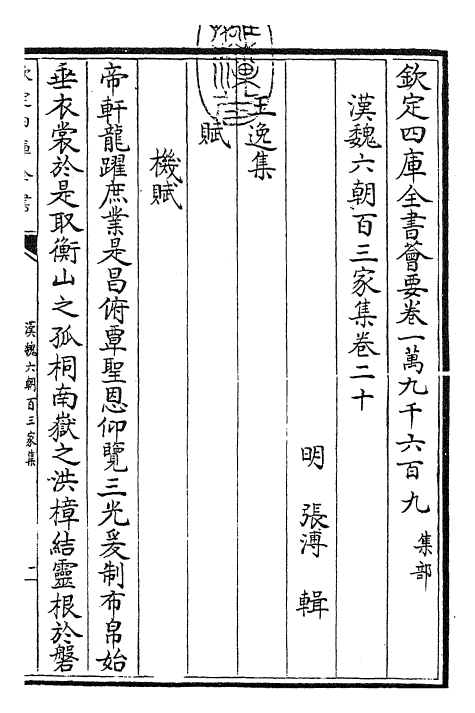 欽定四庫全書薈要卷一萬九千六百九 集部
漢魏六朝百三家集卷二十
明 張溥 輯
王逸集
賦
機賦
帝軒龍躍庶業是昌俯覃聖恩仰覽三光爰制布帛始
垂衣裳於是取衡山之孤桐南嶽之洪樟結靈根於磐
欽定四庫全書
漢魏六朝百三家集